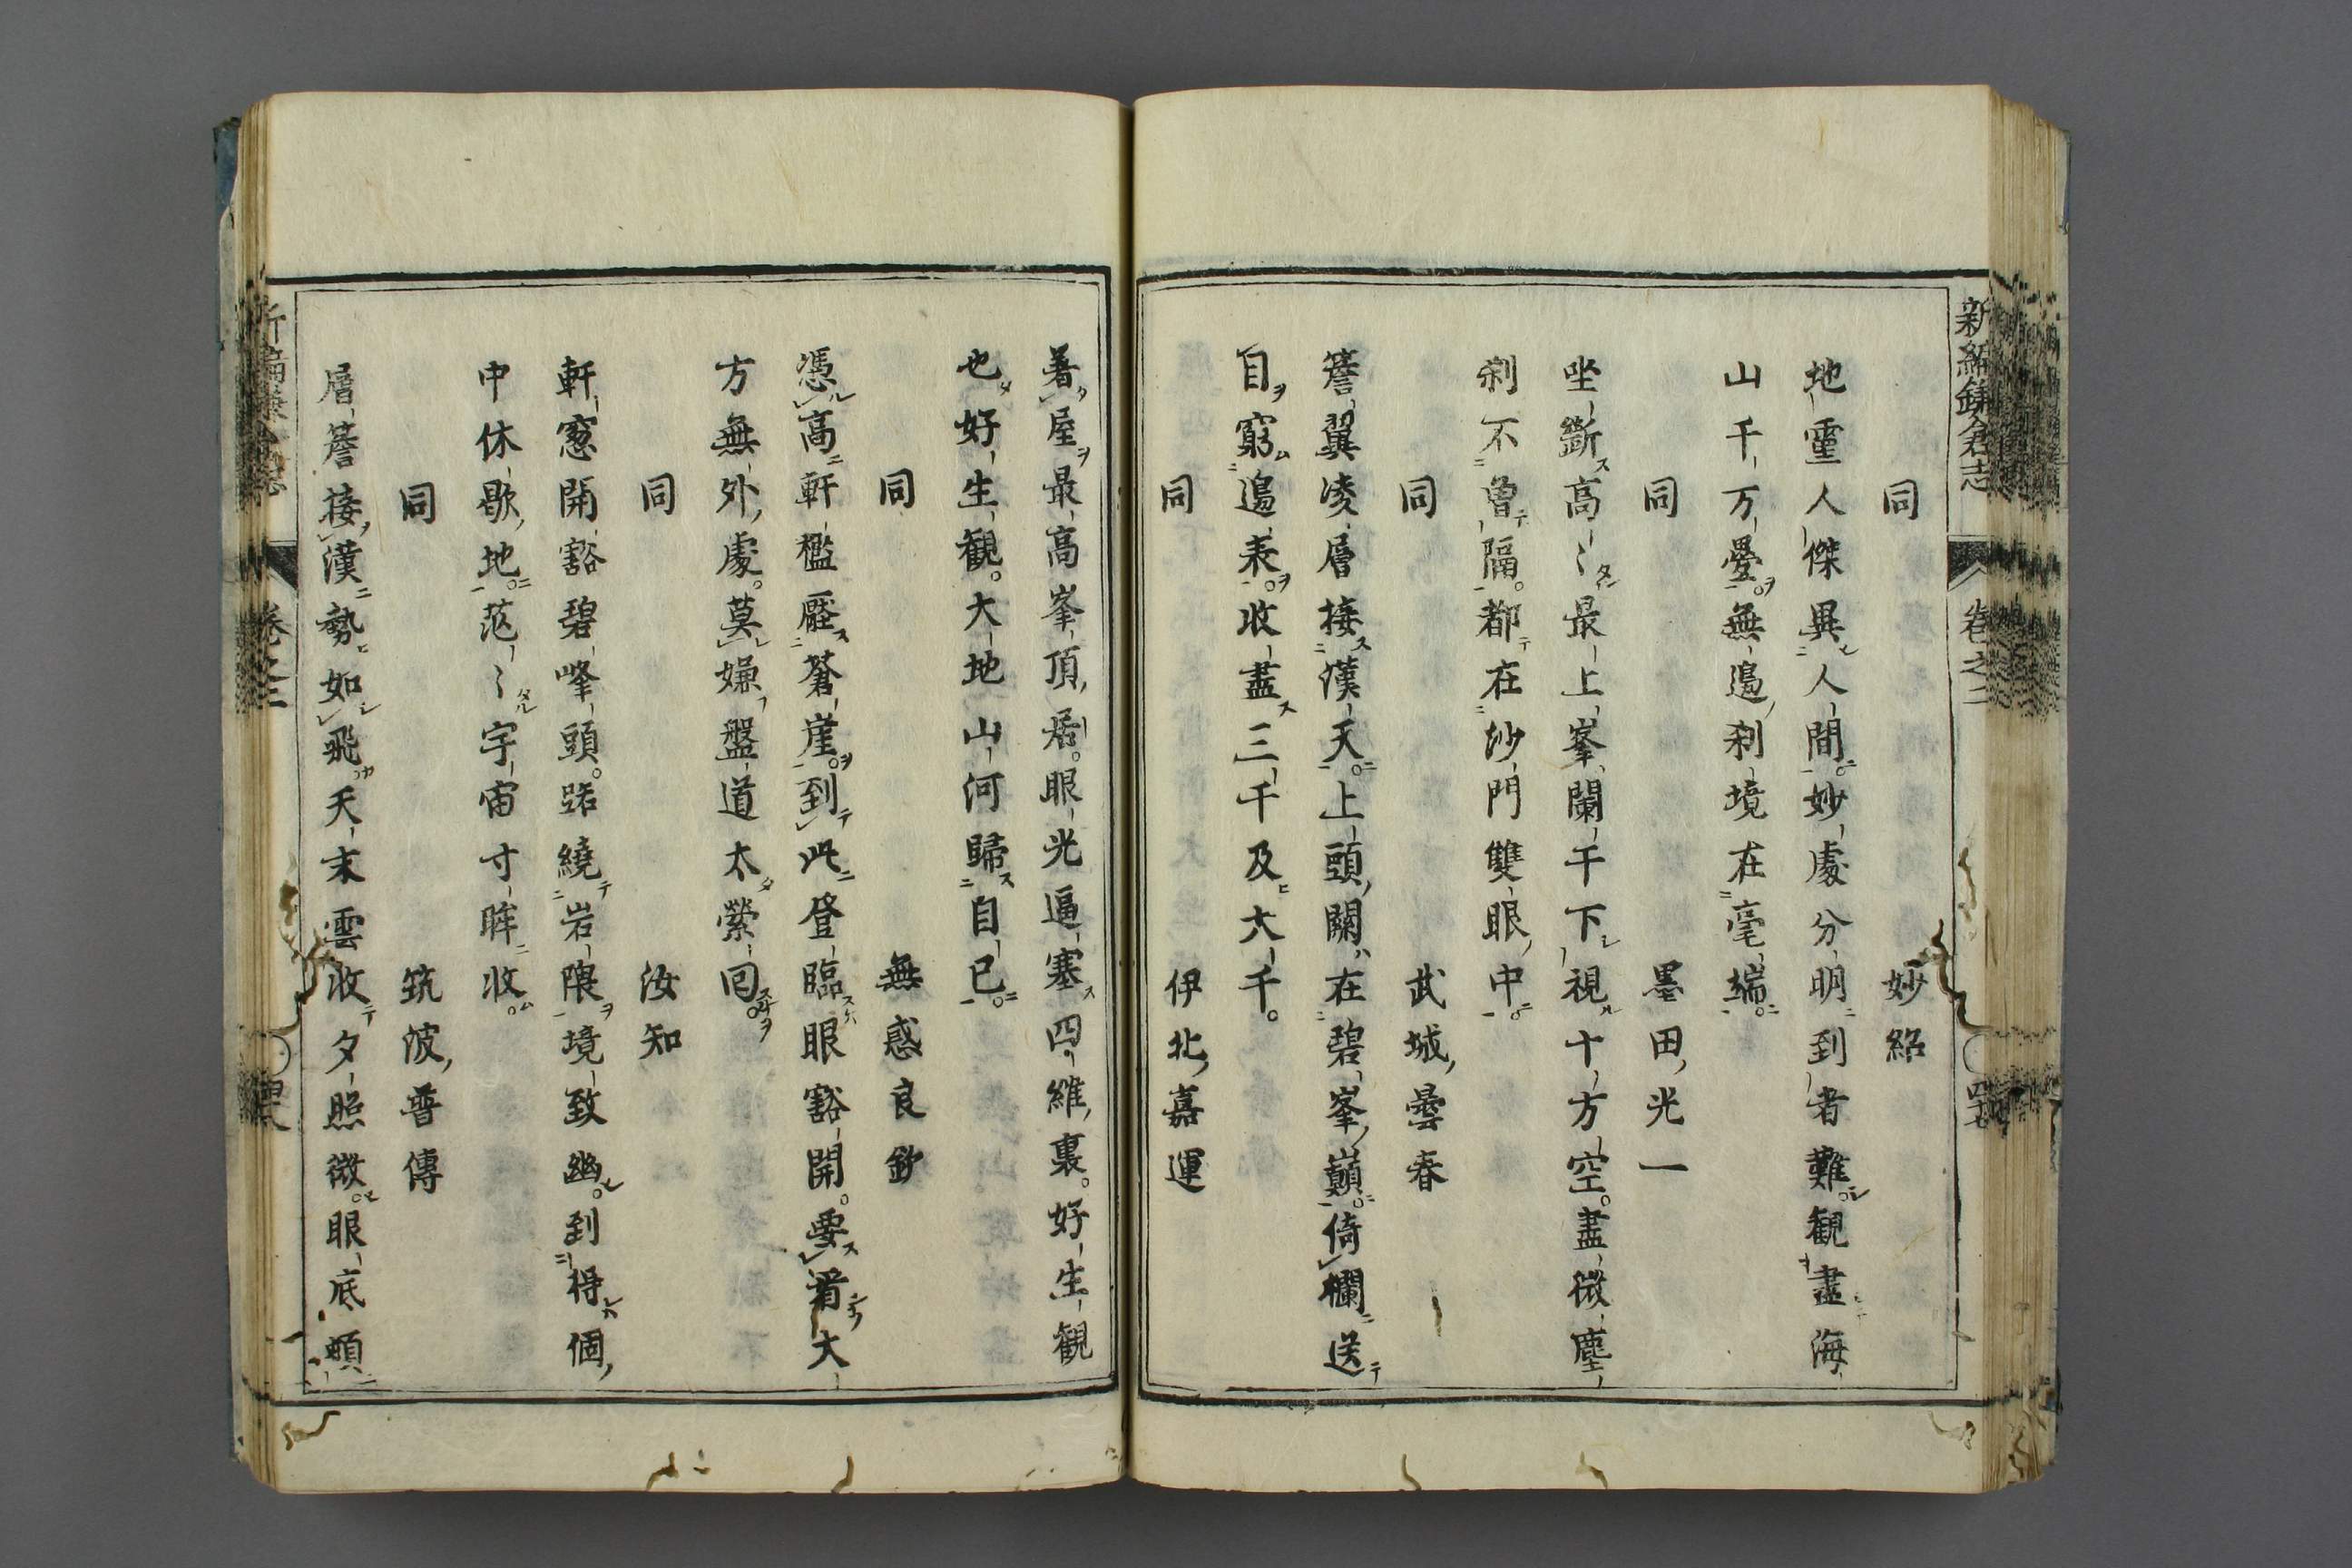 新編鎌倉志
卷之二
四十七
同　妙紹
地靈人傑異人間。妙處分明到者難。観盡海
山千万疊。無邉刹境在毫端。
同　墨田光一
坐斷高〻最上峯。闌干下視十方空。盡微塵
刹不曾隔。都在沙門雙眼中。
同　武城曇春
簷翼凌層接漢天。上頭關在碧峯巓。倚欄送
目窮邉表。收盡三千及大千。
同　伊北嘉運
着屋最高峯頂居。眼光逼塞四維裏。好生観
也好生観。大地山河歸自己。
同　無惑良欽
憑高軒檻壓蒼崖。到此登臨眼豁開。要着大
方無外處。莫嫌盤道太縈回。
同　汝知
軒窓開豁碧峰頭。路繞岩隈境致幽。到得個
中休歇地。茫〻宇宙寸眸收。
同　筑波普傳
層簷接漢勢如飛。天末雲收夕照微。眼底頓
新編鎌倉志
卷之二
四十八